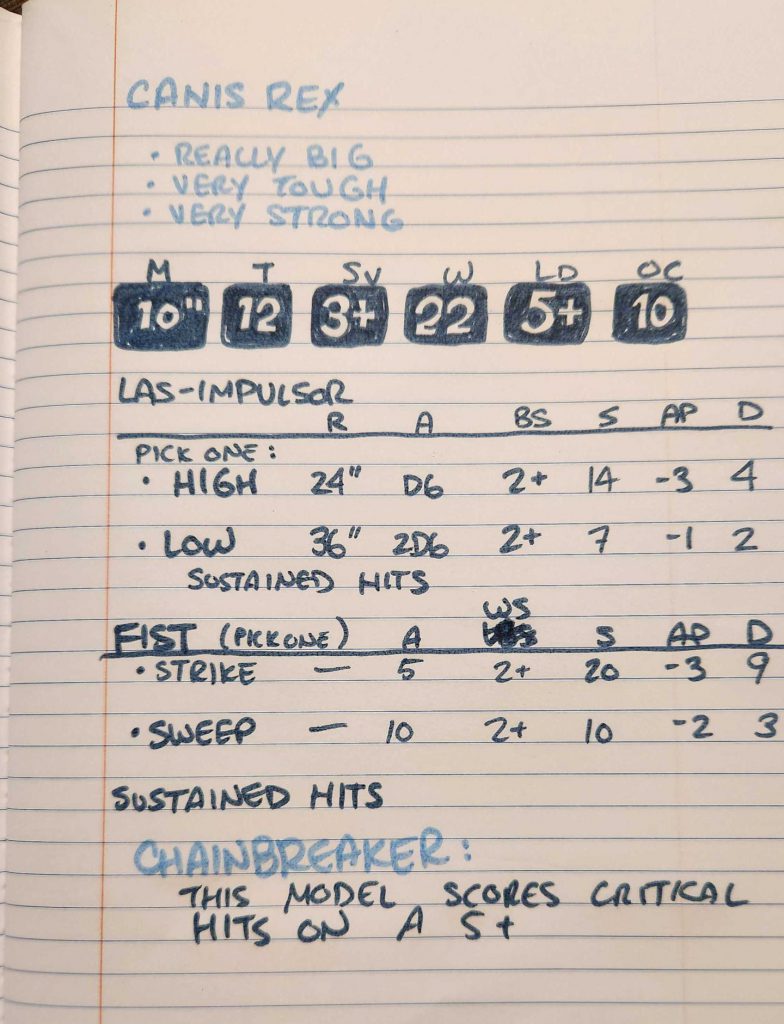 CANIS REX
• REALLY BIG
• VERY TOUGH
• VERY STRONG
M T SV W LD OC
10" 12 3+ 22 5+ 10
LAS-IMPULSOR
R A BS S AP D
PICK ONE:
• HIGH 24" D6 2+ 14 -3 4
• LOW 36" 2D6 2+ 7 -1 2
SUSTAINED HITS
WS
FIST (PICK ONE) A S AP D
• STRIKE — 5 2+ 20 -3 9
• SWEEP — 10 2+ 10 -2 3
SUSTAINED HITS
CHAINBREAKER:
THIS MODEL SCORES CRITICAL
HITS ON A 5+